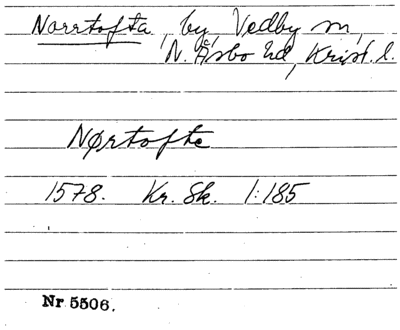 Norrtofta, by, Vedby sn,
N. Åsbo hd, Krist. l.
Nørtofte
1578. Kr. Sk. 1:185
Nr 5506.